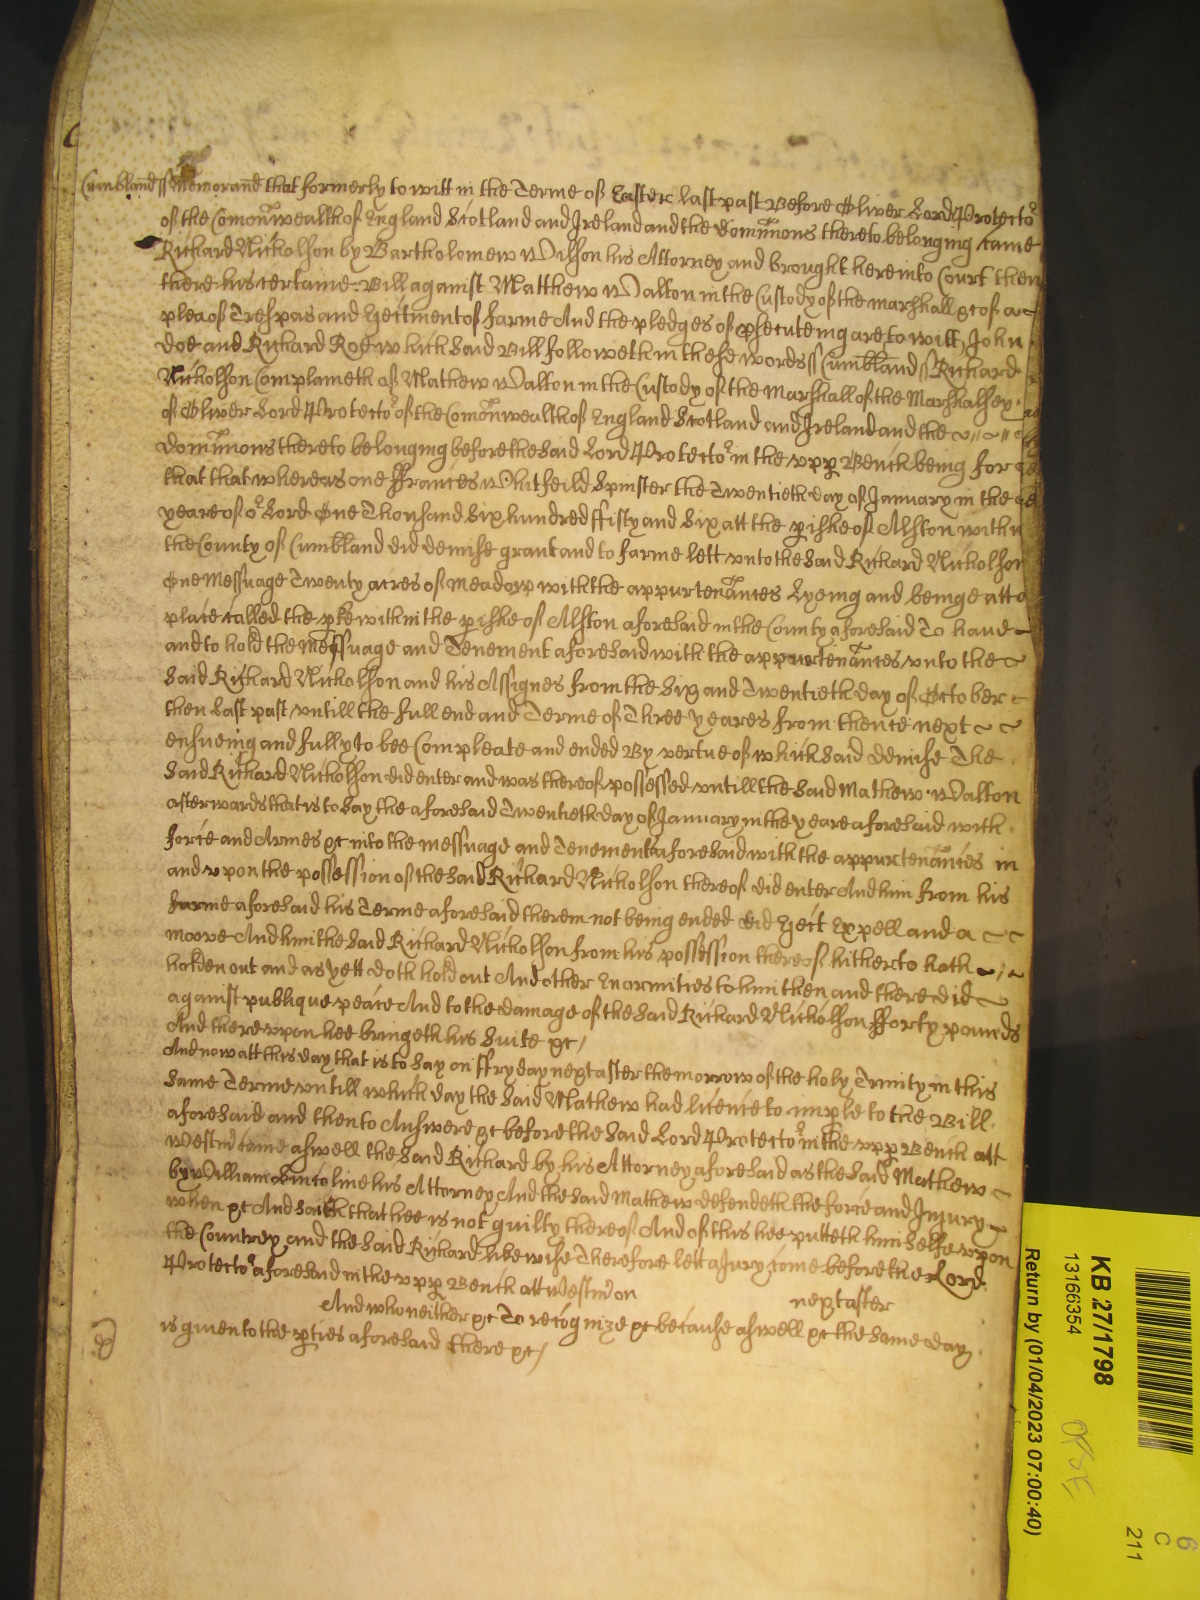 Cumbland ss Memorand that formerly to witt in the Terme of Easter last past Before Oliver Lord Protector
of the Comonwealth of England Scotland and Ireland and the Dominions thereto belonging came
Richard Nicholson by Bartholomew Wilson his Attorney and brought here into Court then
there his certaine Bill against Matthew Walton in the Custody of the marshall &c of a
plea of Trespas and Ejectment of farme And the pledges of psecuteing are to witt John
Doe and Richard Roe which said Bill followeth in these words ss Cumbland ss Richard
Nicholson Complaineth of Mathew Walton in the Custody of the Marshall of the Marshalsey
of Oliver Lord Protector of the Comonwealth of England Scotland and Ireland and the
Dominions thereto belonging before the said Lord Protector in the upp Bench being for
that that whereas one ffrances Whitfeild Spinster the Twentieth day of January in the
yeare of or Lord One Thousand Six hundred ffifty and Six att the pishe of Alston within
the County of Cumbland did demise grant and to farme lett unto the said Richard Nicholson
One Messuage Twenty acres of meadow with the appurtenances Lyeing and beinge att a
place called the pke within the pishe of Alston aforesaid in the County aforesaid To have
and to hold the Messuage and Tenement aforesaid with the appurtenances unto the
said Richard Nicholson and his Assignes from the Six and Twentieth day of October
then last past untill the full end and Terme of Three yeares from thence next
ensueing and fully to bee Compleate and ended By vertue of which said demise The
said Richard Nicholson did enter and was thereof possessed untill the said Mathew Walton
afterwards that is to say the aforesaid Twentieth day of January in the yeare aforesaid with
force and Armes &c into the messuage and Tenement aforesaid with the appurtenances in
and upon the possession of the said Richard Nicholson thereof did enter And him from his
farme aforesaid his Terme aforesaid therein not being ended did Eject Expell and a
moove And him the said Richard Nicholson from his possession thereof hitherto hath
holden out and as yett doth hold out And other Enormities to him then and there did
against publique peace And to the damage of the said Richard Nicholson fforty pounds
And thereupon hee bringeth his Suite &c
And now att this day that is to say on ffryday next after the morrow of the holy Trinity in this
same Terme untill which day the said Mathew had licence to imple to the Bill
aforesaid and then to Answere &c before the said Lord Protector in the upp Bench att
Westm came aswell the said Richard by his Attorney aforesaid as the said Mathew
by William Lincolne his Attorney And the said Mathew defendeth the force and Injury
when &c And saith that hee is not guilty thereof And of this hee putteth himselfe upon
the Countrey and the said Richard likewise Therefore lett a Jury come before the Lord
Protector aforesaid in the upp Bench att Westm on next after
And who neither &c To recognize &c because aswell &c the same day
is given to the pties aforesaid there &c
KB 27/1798
13166354
Return by (01/04/2023 07:00:40)
6
C
211